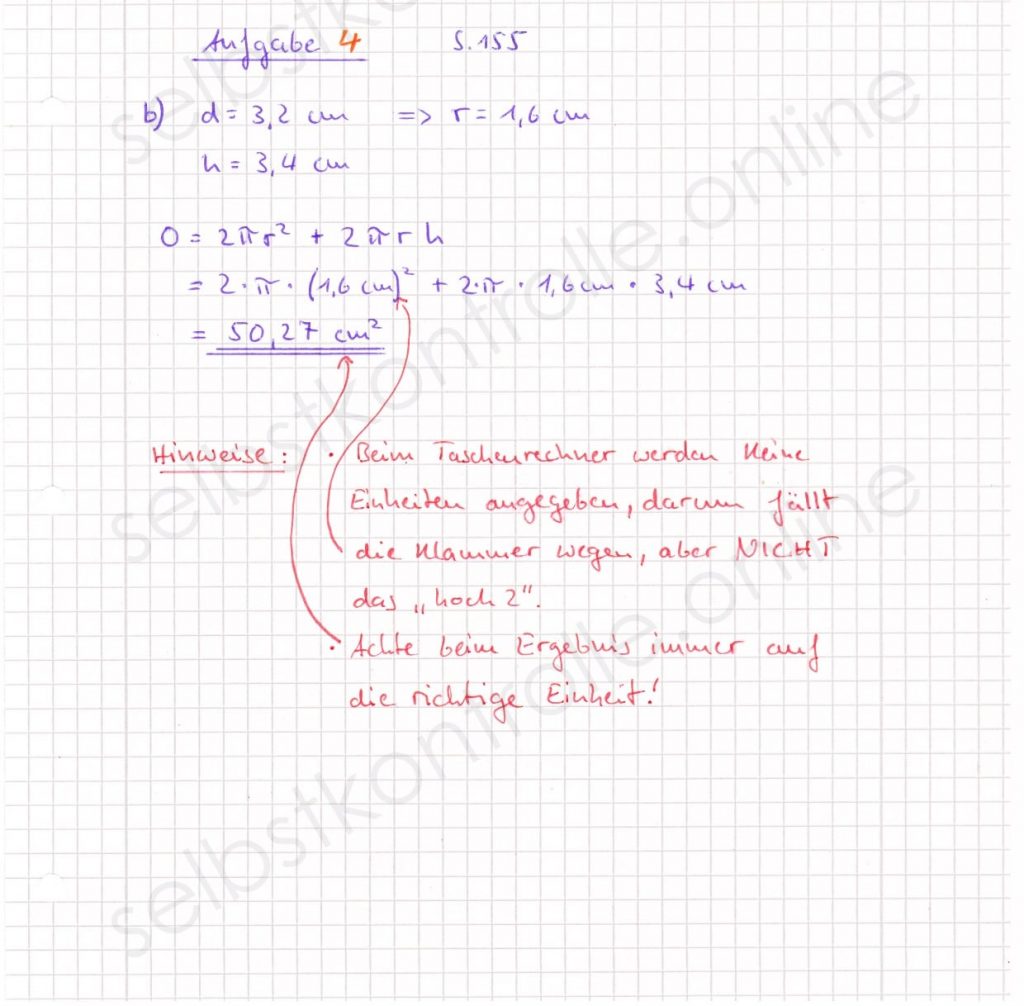 Aufgabe 4 S.155
b) d = 3,2 cm => r = 1,6 cm
h = 3,4 cm
O = 2πr² + 2πrh
= 2·π·(1,6 cm)² + 2·π·1,6 cm·3,4 cm
= 50,27 cm²
Hinweise: · Beim Taschenrechner werden keine
Einheiten angegeben, darum fällt
die Klammer wegen, aber NICHT
das „hoch 2".
· Achte beim Ergebnis immer auf
die richtige Einheit!
selbstkontrolle.online
selbstkontrolle.online
selbstkontrolle.online